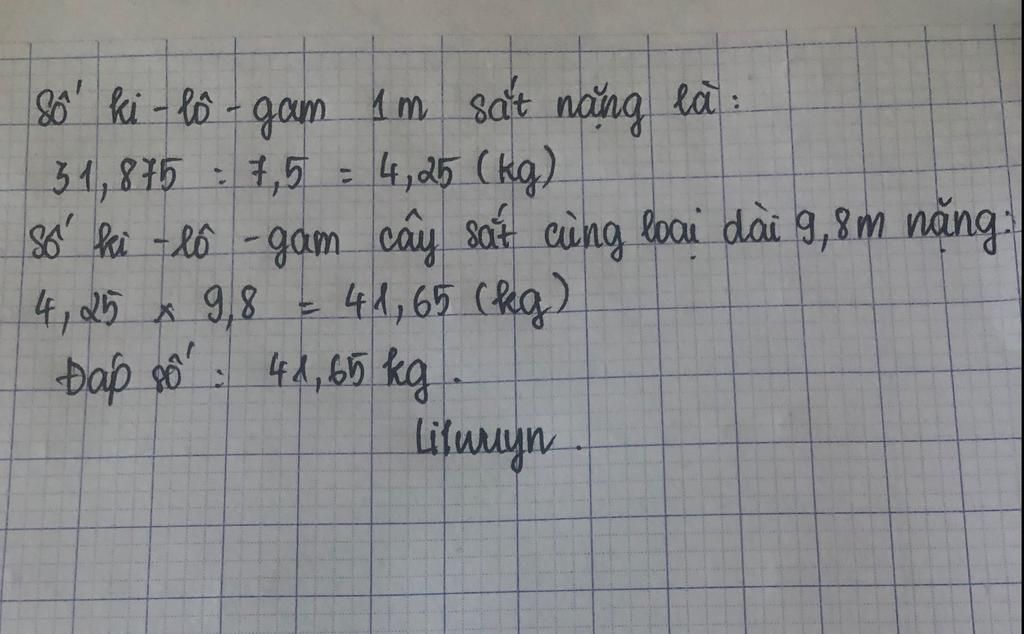 Số ki-lô-gam 1m sắt nặng là:
31,875 : 7,5 = 4,25 (kg)
Số ki-lô-gam cây sắt cùng loại dài 9,8m nặng:
4,25 x 9,8 = 41,65 (kg)
Đáp số: 41,65 kg.